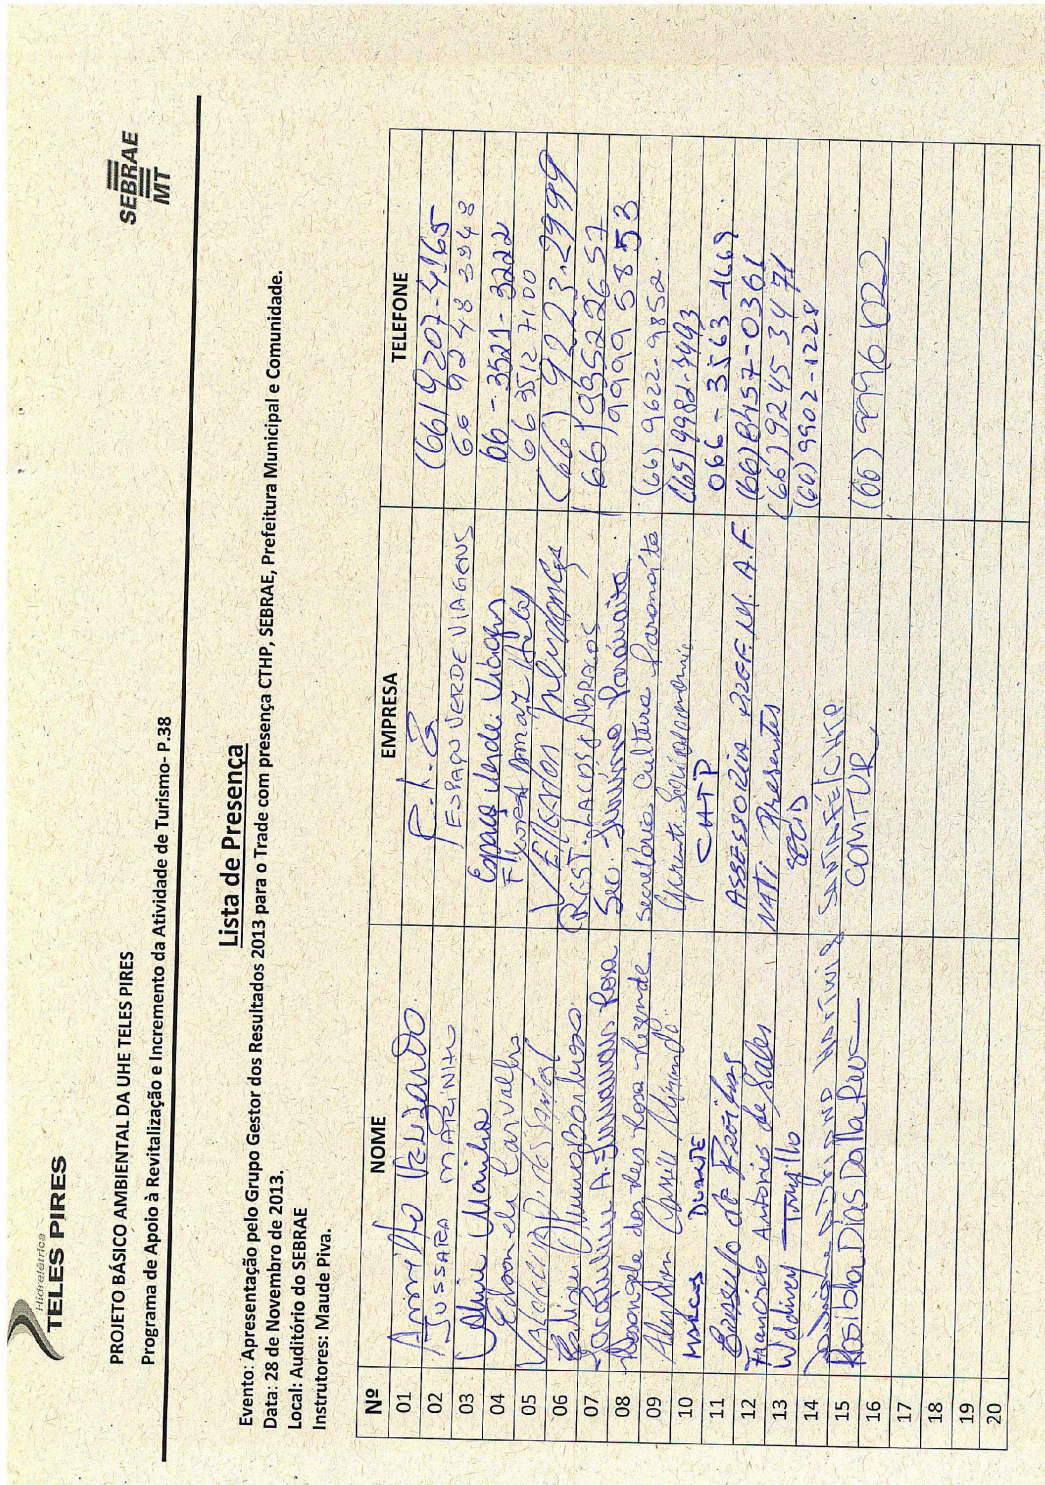 Hidrelétrica
TELES PIRES
SEBRAE
MT
PROJETO BÁSICO AMBIENTAL DA UHE TELES PIRES
Programa de Apoio à Revitalização e Incremento da Atividade de Turismo- P.38
Lista de Presença
Evento: Apresentação pelo Grupo Gestor dos Resultados 2013 para o Trade com presença CTHP, SEBRAE, Prefeitura Municipal e Comunidade.
Data: 28 de Novembro de 2013.
Local: Auditório do SEBRAE
Instrutores: Maude Piva.
Nº NOME EMPRESA TELEFONE
01 (66) 9207-4165
02 JUSSARA MARINHO ESPAÇO VERDE VIAGENS 66 9248 3948
03 Marinho Espaço Verde Viagens 66-3521-3222
04 Edsonela Carvalho Floresta Amaz Hotel 66 3512 7100
05 (66) 9223.2999
06 REST. LAÇOS & ABRAÇOS (66) 95522657
07 Rosa Sec. 9999 5853
08 Rosangela dos Reis Rosa Rezende Secretária Cultura Paranaíta (66) 9622-9852.
09 Gerente (65) 9982-3493
10 MARCOS DUARTE CHTP 066-3563 1669
11 de ASSESSORIA PREF. M. A.F. (66) 8457-0361
12 Francisco Antonio de Sales NATI Presentes (66) 9245 3471
13 SECID (66) 9902-1228
14 MARTINS SANTA FÉ/CHTP
15 Rosilda Dias Dalla COMTUR (66) 9996 1022
16
17
18
19
20